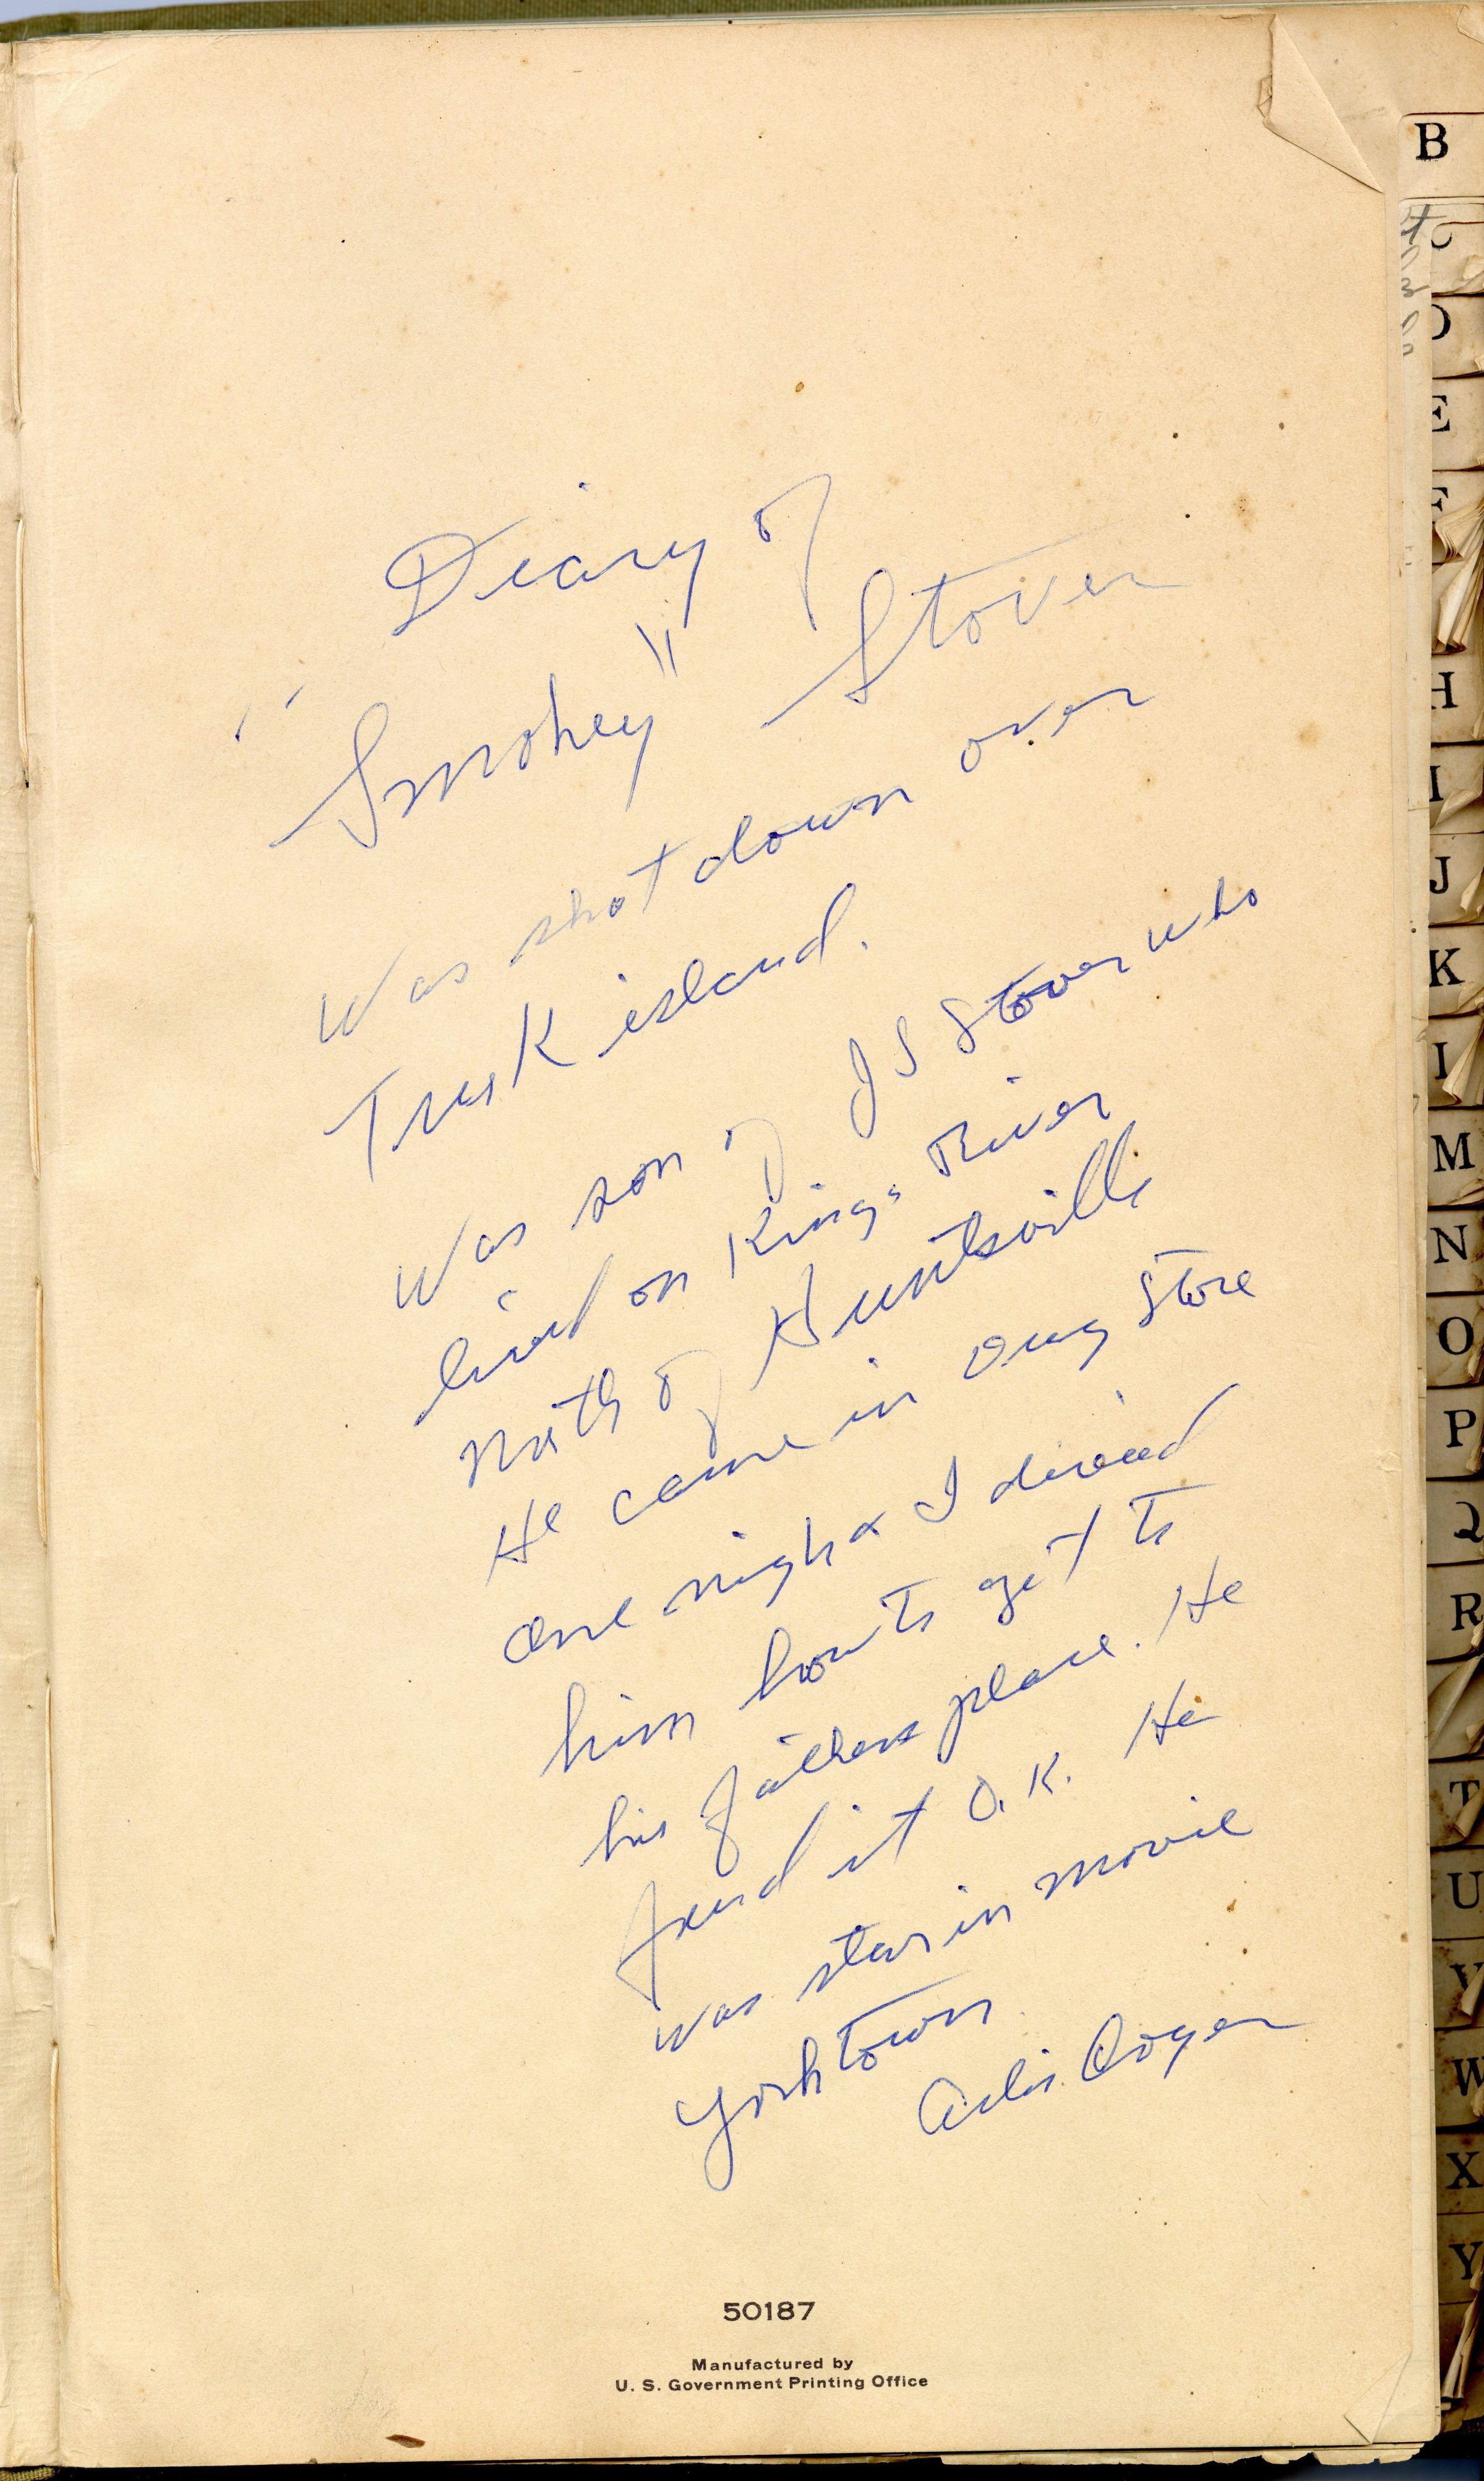 Diary of
"Smokey" Stover
Was shot down over
Truk island.
Was son of J S Stover who
lived on Kings River
North of Huntsville
He came in Drug Store
one night & I direced
him how to get to
his fathers place. He
found it O.K. He
was star in movie
Yorktown.
50187
Manufactured by
U. S. Government Printing Office
B
D
E
F
H
I
J
K
M
N
O
P
Q
R
T
U
V
W
X
Y